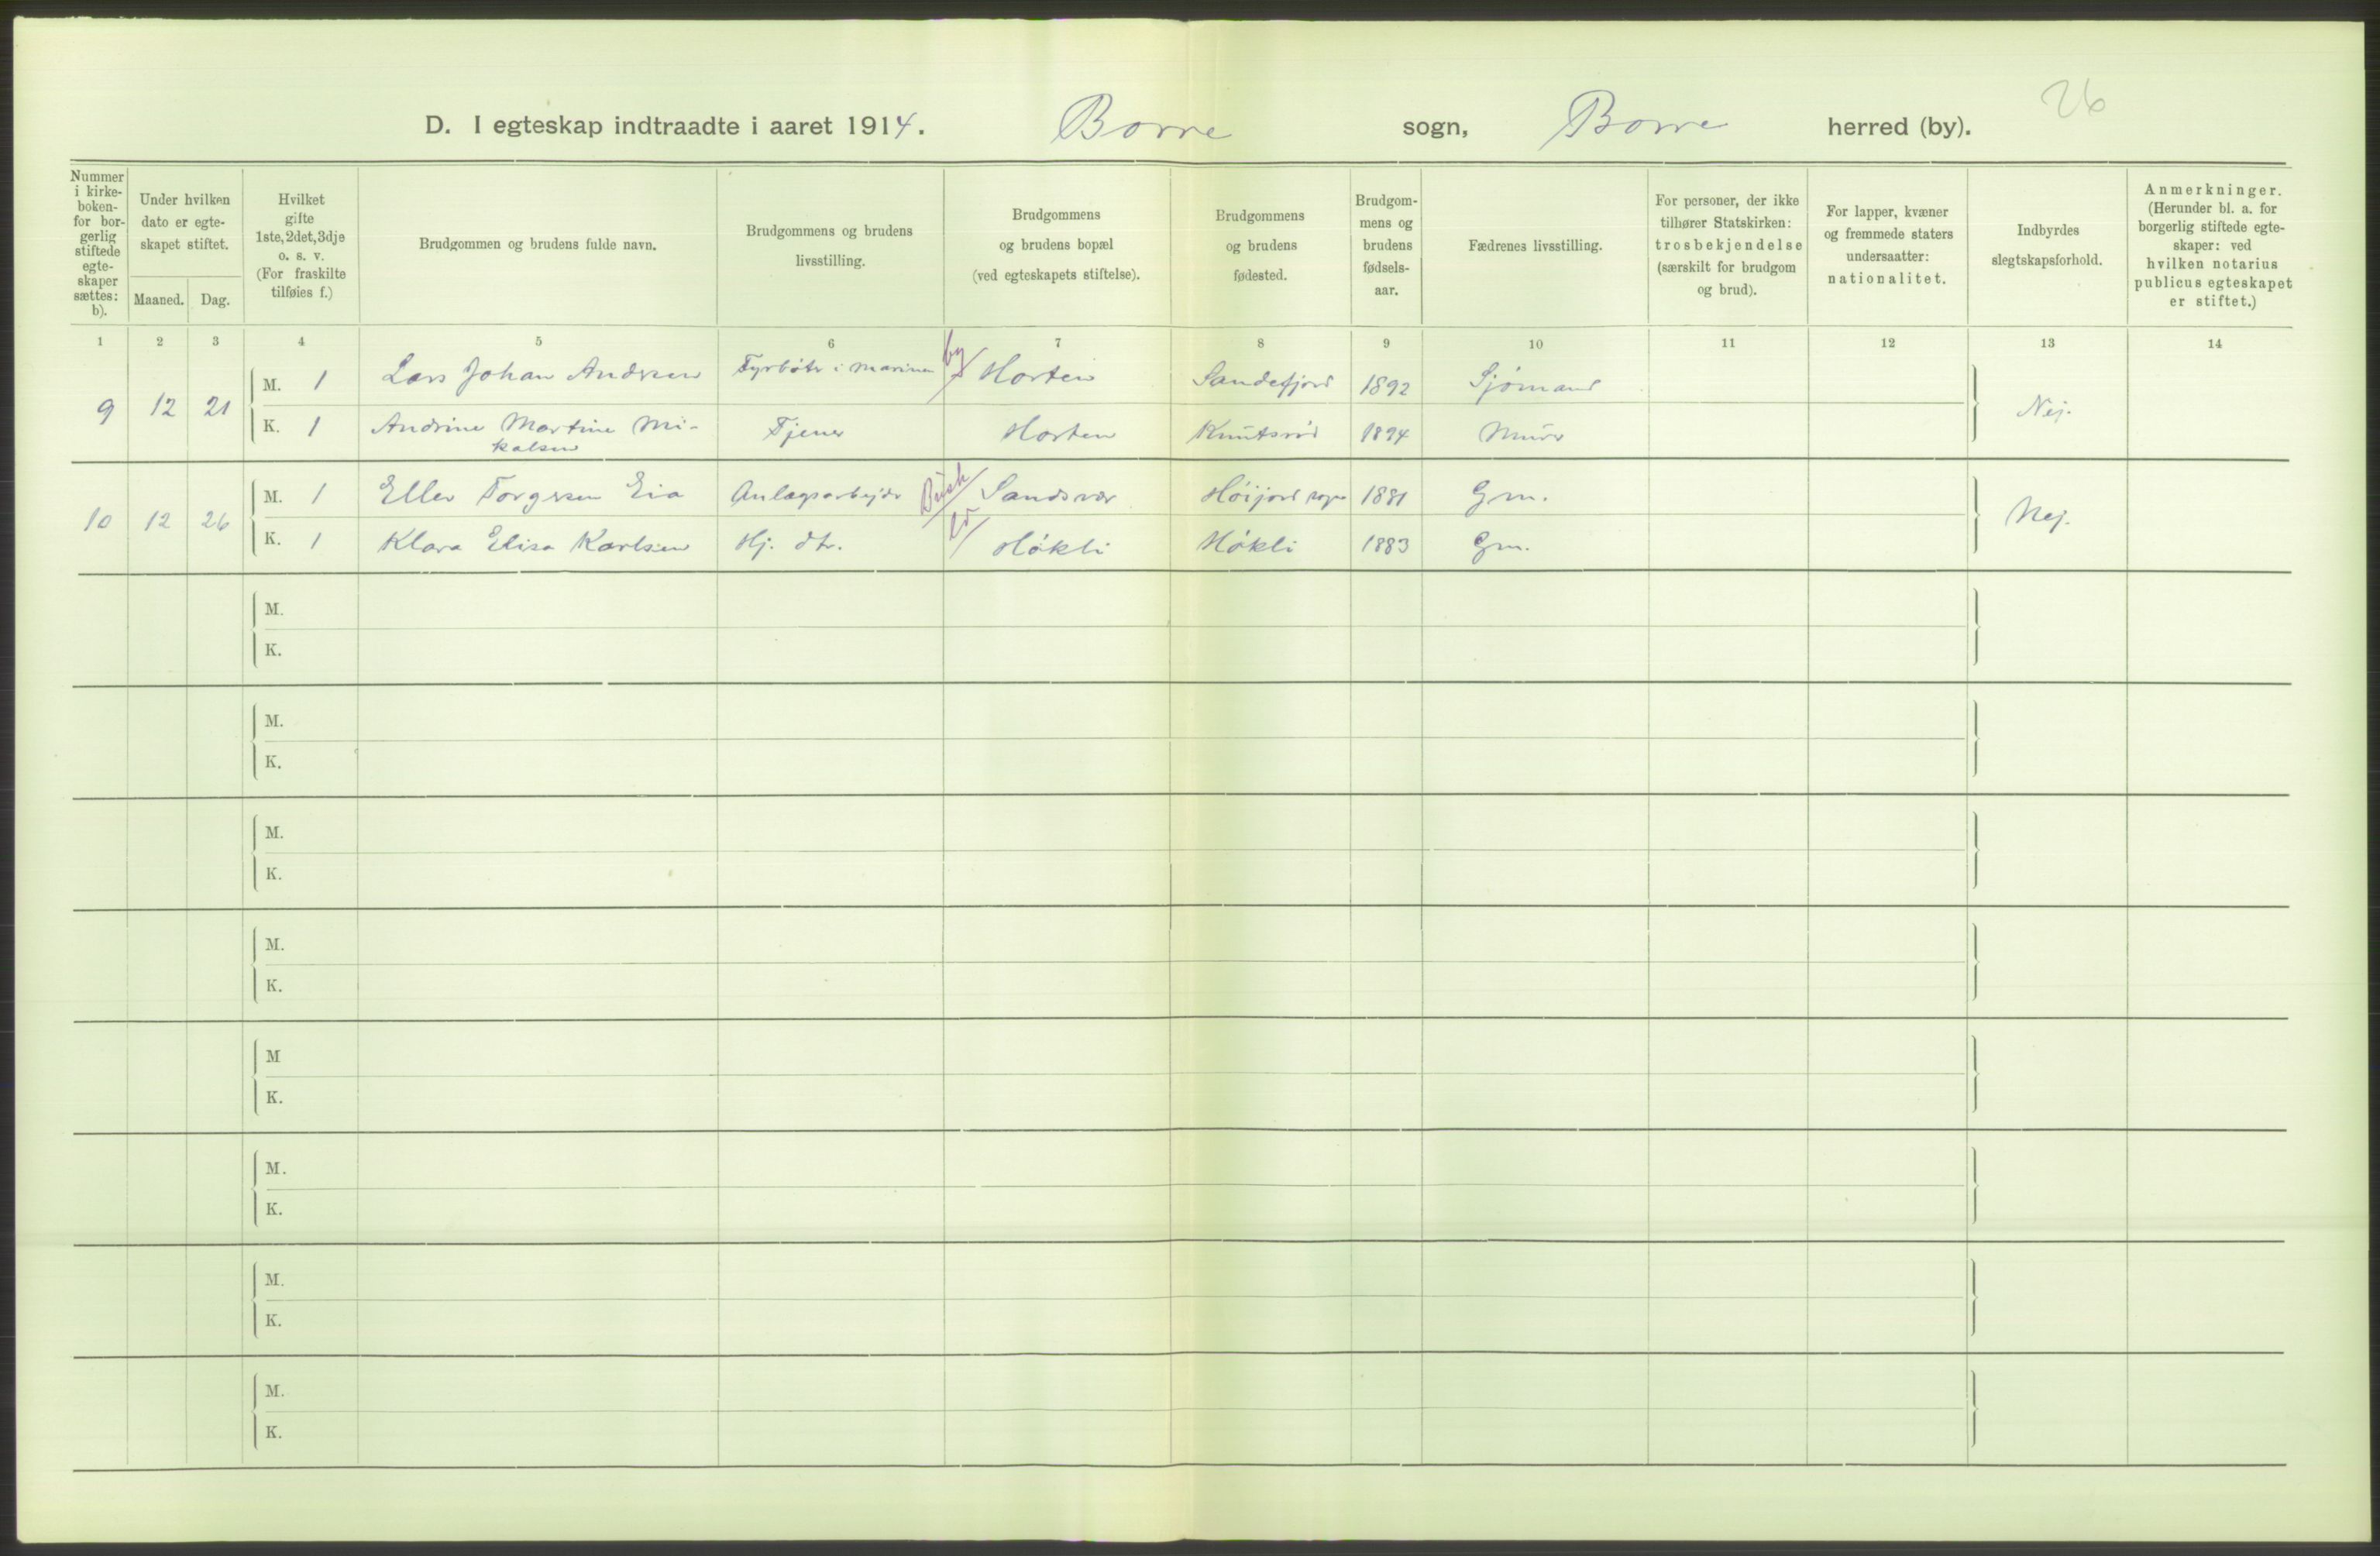 26
D. I egteskap indtraadte i aaret 1914. Borre sogn, Borre herred (by).
Nummer i kirke- boken- for bor- gerlig stiftede egte- skaper sættes: b).
Under hvilken dato er egte- skapet stiftet.
Maaned. Dag.
Hvilket gifte 1ste, 2det, 3dje o. s. v. (For fraskilte tilføies f.)
Brudgommen og brudens fulde navn.
Brudgommens og brudens livsstilling.
Brudgommens og brudens bopæl (ved egteskapets stiftelse).
Brudgommens og brudens fødested.
Brudgom- mens og brudens fødsels- aar.
Fædrenes livsstilling.
For personer, der ikke tilhører Statskirken: trosbekjendelse (særskilt for brudgom og brud).
For lapper, kvæner og fremmede staters undersaatter: nationalitet.
Indbyrdes slegtskapsforhold.
Anmerkninger. (Herunder bl. a. for borgerlig stiftede egte- skaper: ved hvilken notarius publicus egteskapet er stiftet.)
1 2 3 4 5 6 7 8 9 10 11 12 13 14
M. 1 Lars Johan Andrsen Fyrbøtr i marinen by Horten Sandefjord 1892 Sjømand
9 12 21 Nej.
K. 1 Andrine Martine Mi- Tjener Horten Knutsrød 1894 Murer
kalsen
M. 1 Ellev Torgersen Eia Anlægsarbejdr Busk Sandsvær Høijord sogn 1881 Gm.
10 12 26 Nej.
K. 1 Klara Elisa Karlsen Hj. dtr. Høkli Høkli 1883 Gm.
M.
K.
M.
K.
M.
K.
M.
K.
M
K.
M.
K.
M.
K.
M.
K.